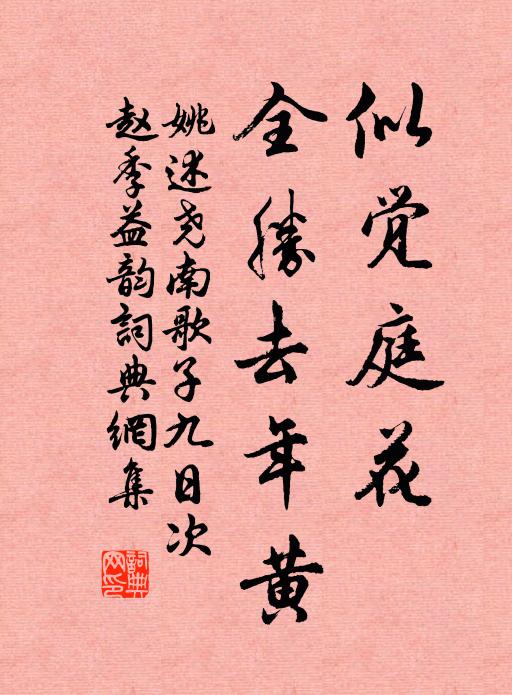 似觉庭花
全勝去年黄
姚述尧南歌子九日次
赵季益韵詞典網集
詞典网印